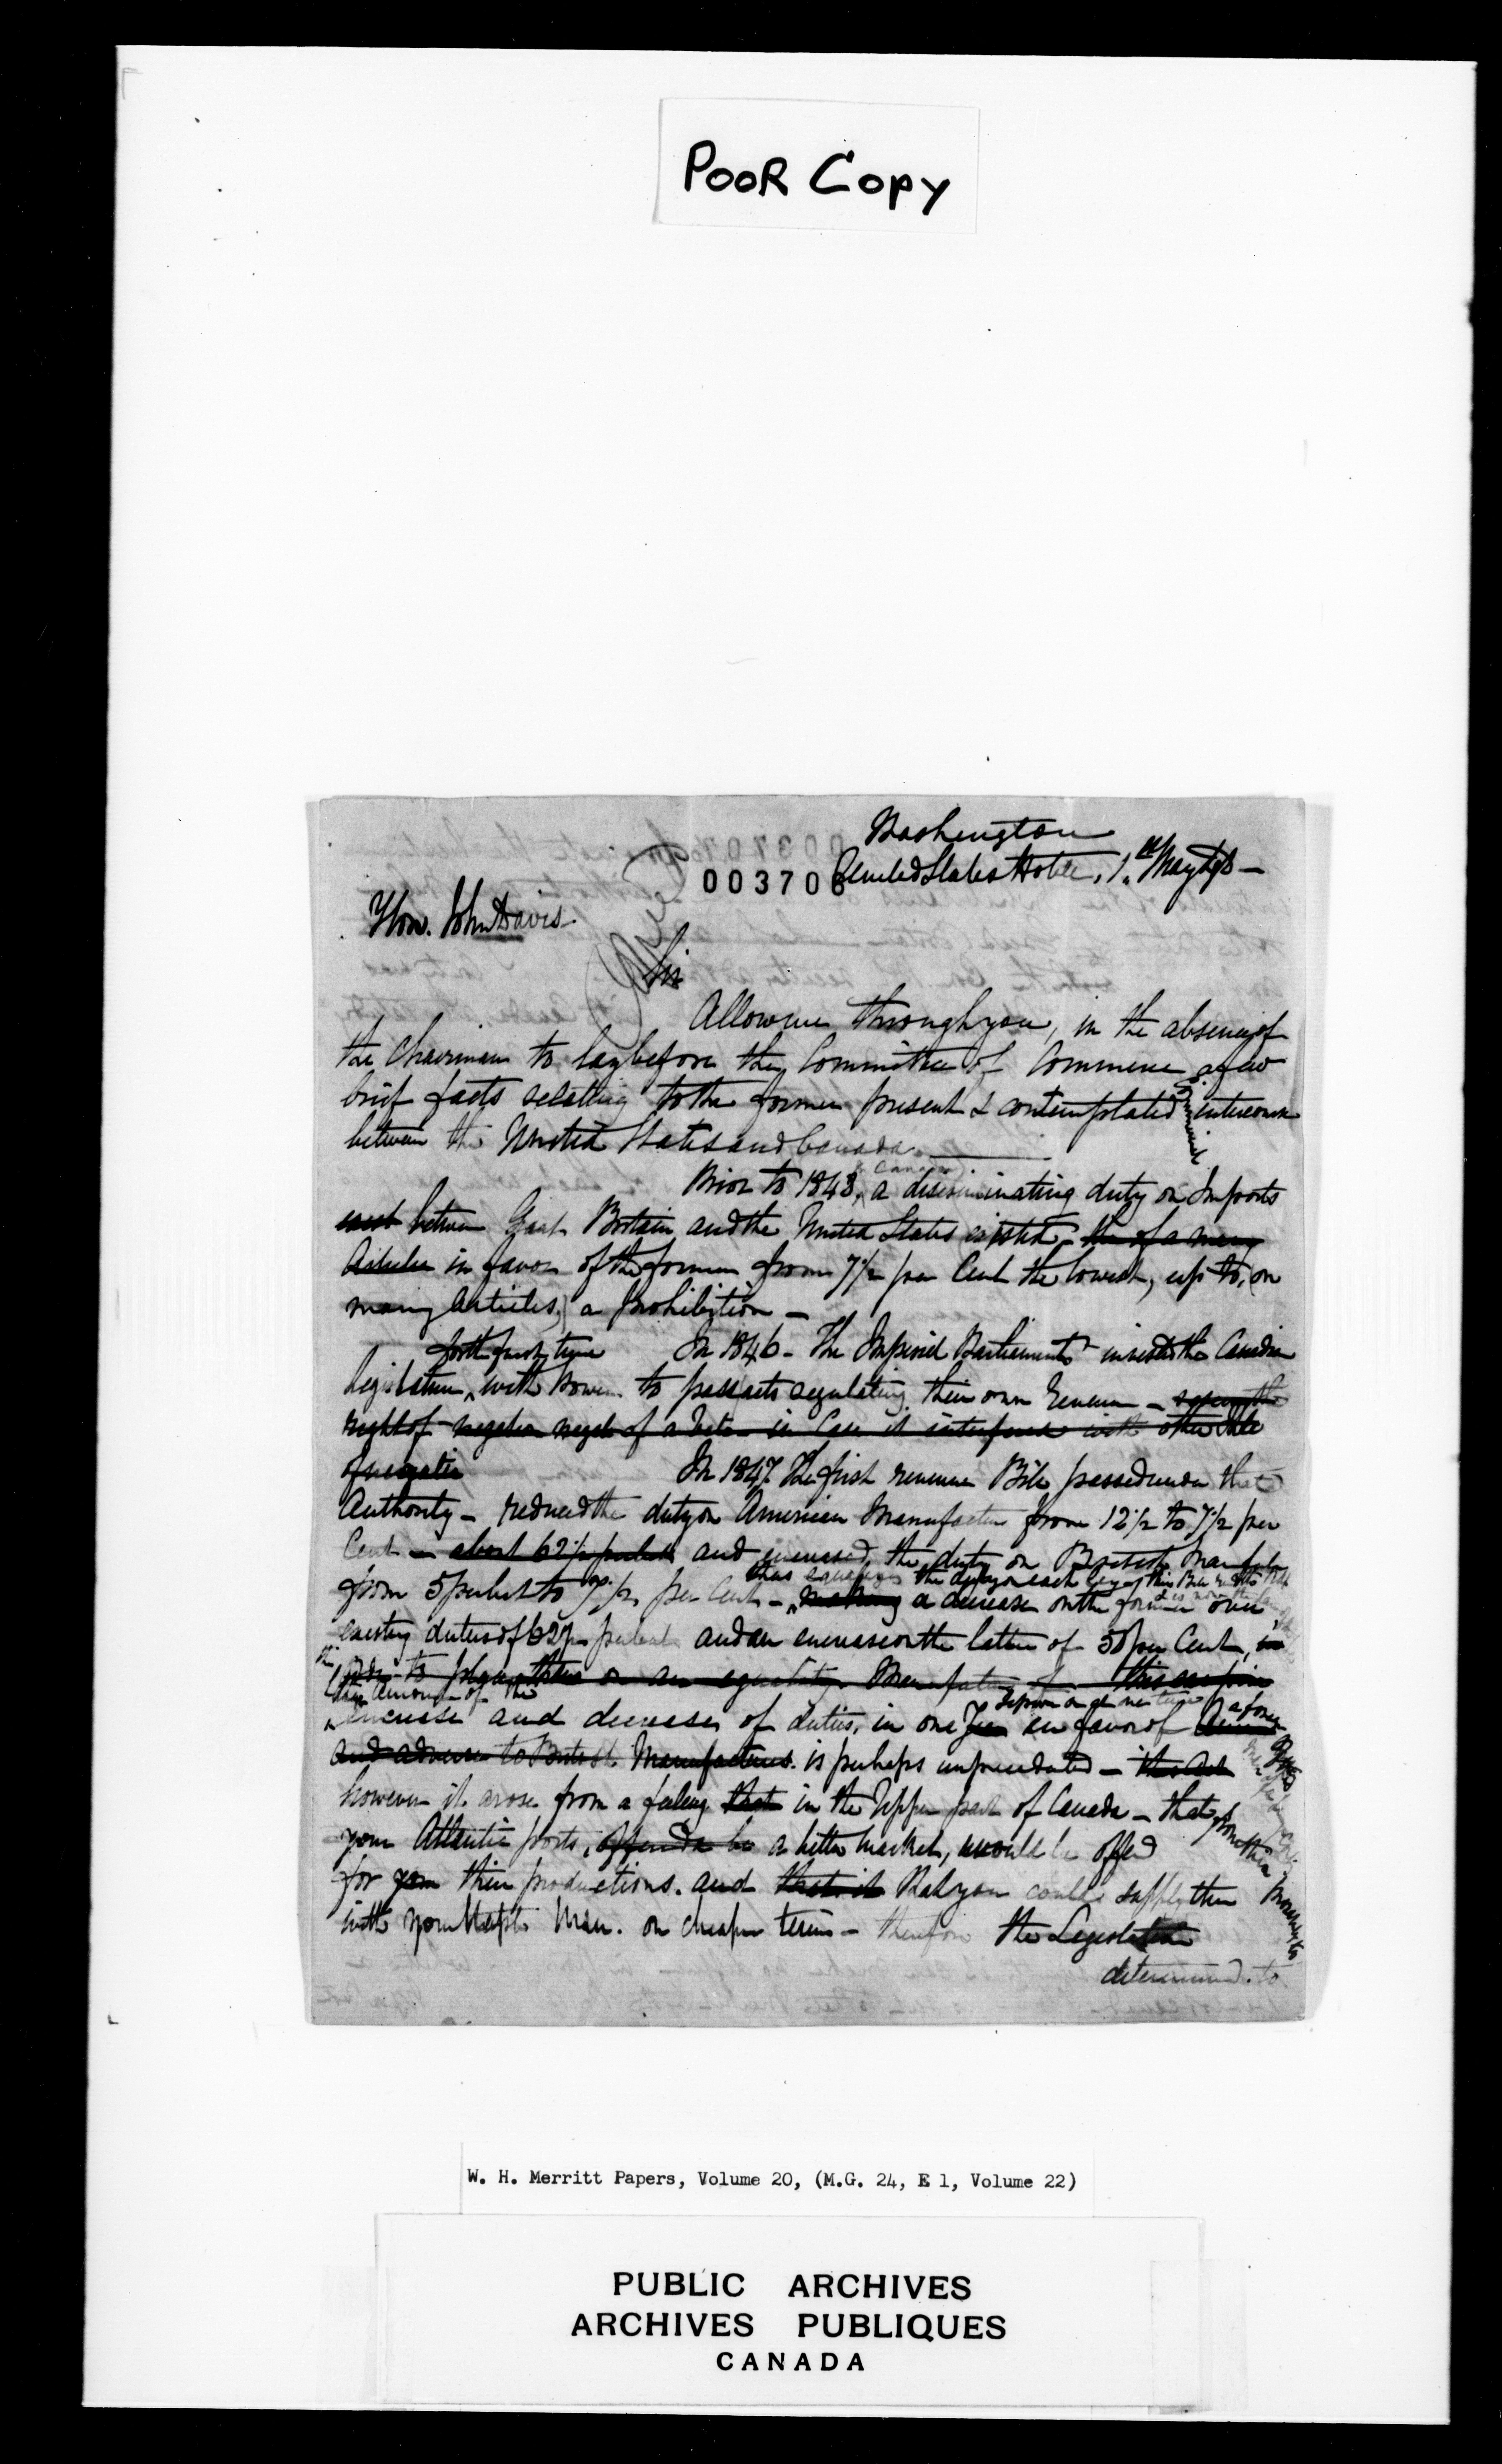 POOR COPY
Washington
United States Hotel, 1st May
003706
Hon. John Davis.
Sir
Allow me through you, in the absence of
the Chairman to lay before the Committee of Commerce a few
brief facts relating to the former present & contemplated intercourse
between the United States and Canada.
in Canada
Prior to 1843, a discriminating duty on Imports
between Great Britain and the United States existed - the of a many
Articles in favor of the former from 7 1/2 per Cent the lowest, up to, (on
many Articles,) a prohibition -
In 1846 - The Imperial Parliament invested the Canadian
for the first time
Legislature, with Power to pass acts regulating their own Revenue -
right of in Case it interfered with other
In 1847. The first revenue Bill passed under that
Authority - reduced the duty on American Manufactures from 12 1/2 to 7 1/2 per
Cent - about 62 1/2 and increased the duty on British Manufac
thus equalizing the duty on each
from 5 per cent to 7 1/2 per Cent - making a decrease on the former over
existing duties of 62 1/2 per cent and an increase on the latter of 50 per Cent, in
order to place them on an equality
amount of the
increase and decrease of duties, in one in favor of
and adverse to British Manufactures is perhaps unprecedented -
however it arose from a feeling that in the Upper part of Canada - that
your Atlantic ports, a better market, would be offered
for your their productions. and that it that you could supply them
with your Man. on cheaper terms - therefore the Legislature
determined to
W. H. Merritt Papers, Volume 20, (M.G. 24, E 1, Volume 22)
PUBLIC ARCHIVES
ARCHIVES PUBLIQUES
CANADA